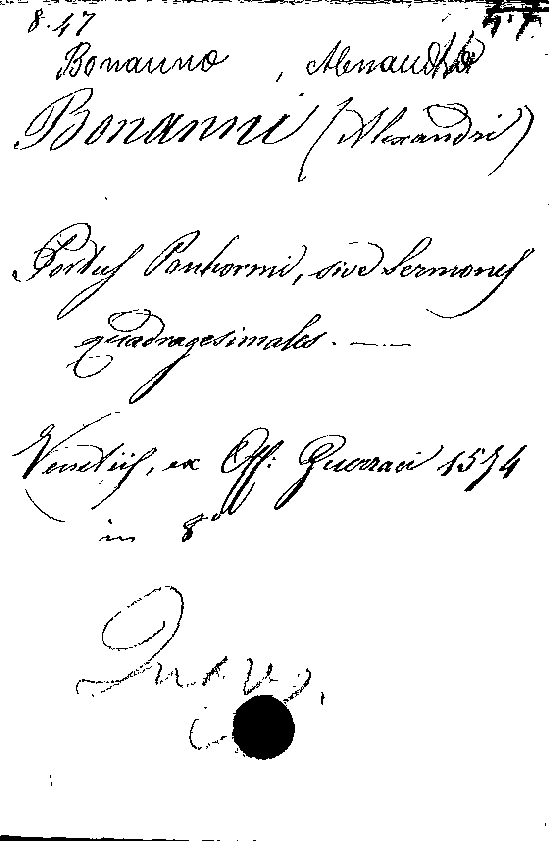 8. 47
Bonanno, Alessandro
Bonanni (Alexandri)
Portus Panhormi, sive Sermones
quadragesimales. —
Venetiis, ex Off: Guerraei 1574
in 8º